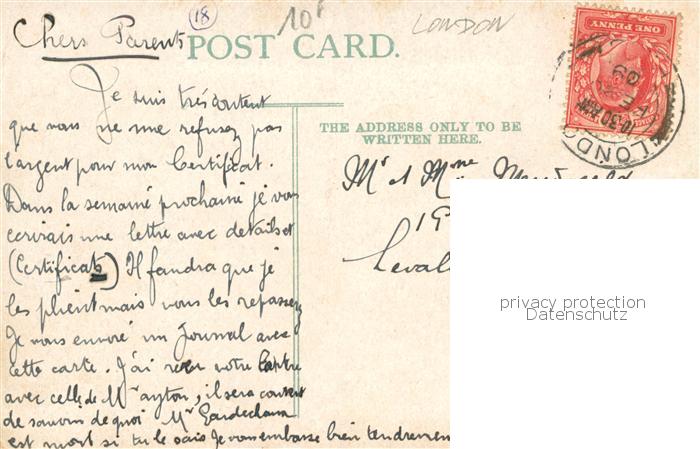 18
10F
LONDON
Chers Parents
POST CARD.
ONE PENNY
LONDON
10.30 AM
09
Je suis très content
que vous ne me refusez pas
l'argent pour mon Certificat.
Dans la semaine prochaine je vous
ecrirais une lettre avec details et
(Certificats) Il faudra que je
les plient mais vous les repasserez
Je vous envoie un Journal avec
cette carte. J'ai reçu votre lettre
avec celle de Mr ayton, il sera content
de savoir de quoi Mr
est mort si tu le sais Je vous embrasse bien tendrement
THE ADDRESS ONLY TO BE
WRITTEN HERE.
Mr et Mme
19
Leval
privacy protection
Datenschutz